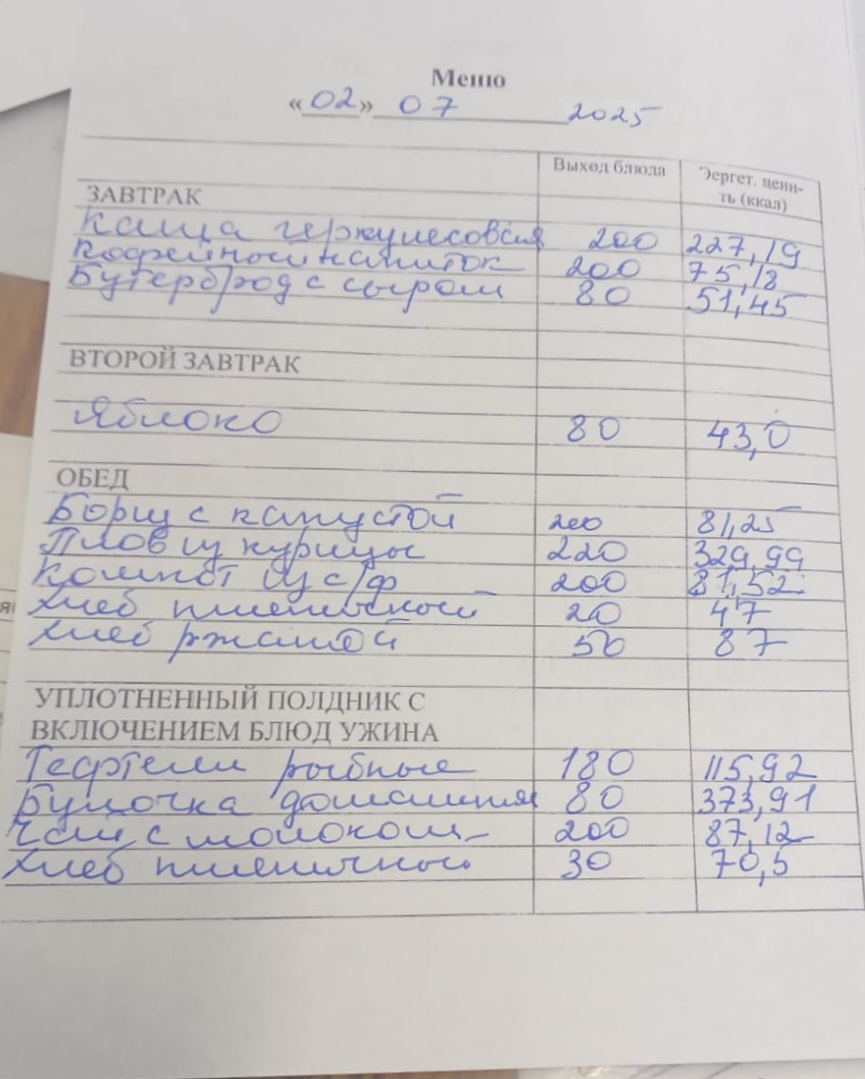 Меню
«02» 07 2025
Выход блюда
Эергет. ценн-
ть (ккал)
ЗАВТРАК
Каша геркулесовая 200 227,19
Кофейный напиток 200 75,18
Бутерброд с сыром 80 51,45
ВТОРОЙ ЗАВТРАК
Яблоко 80 43,0
ОБЕД
Борщ с капустой 200 81,25
Плов из курицы 220 329,99
Компот из с/ф 200 81,52
Хлеб пшеничный 20 47
Хлеб ржаной 50 87
УПЛОТНЕННЫЙ ПОЛДНИК С
ВКЛЮЧЕНИЕМ БЛЮД УЖИНА
Тефтели рыбные 180 115,92
Булочка домашняя 80 373,91
Чай с молоком 200 87,12
Хлеб пшеничный 30 70,5